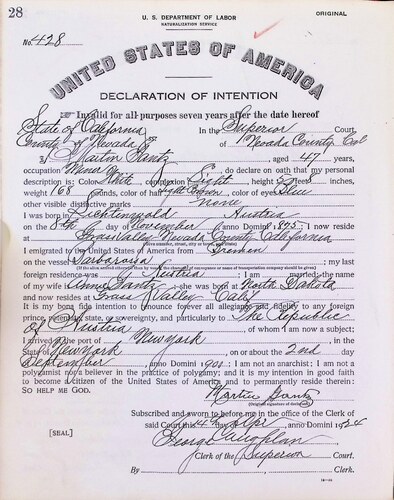 28
U. S. DEPARTMENT OF LABOR
NATURALIZATION SERVICE
ORIGINAL
No. 428
UNITED STATES OF AMERICA
DECLARATION OF INTENTION
Invalid for all purposes seven years after the date hereof
State of California In the Superior Court,
County of Nevada of Nevada County Cal
I, Martin , aged 47 years,
occupation Miner , do declare on oath that my personal
description is: Color White, complexion Light, height 5 feet 8 inches,
weight 168 pounds, color of hair Brown, color of eyes Blue
other visible distinctive marks none
I was born in Austria
on the 8th day of November, anno Domini ; I now reside
at Grass Valley Nevada County California
I emigrated to the United States of America from Bremen
on the vessel Barbarossa ; my last
foreign residence was Austria ; I am married; the name
of my wife is Anna ; she was born at North Dakota
and now resides at Grass Valley Calif.
It is my bona fide intention to renounce forever all allegiance and fidelity to any foreign
prince, potentate, state, or sovereignty, and particularly to The Republic
of Austria , of whom I am now a subject;
I arrived at the port of New York , in the
State of New York , on or about the 2nd day
September , anno Domini ; I am not an anarchist; I am not a
polygamist nor a believer in the practice of polygamy; and it is my intention in good faith
to become a citizen of the United States of America and to permanently reside therein:
SO HELP ME GOD.
Martin
(Original signature of declarant)
Subscribed and sworn to before me in the office of the Clerk of
said Court this 4th day of , anno Domini 1924
[SEAL]
George
Clerk of the Superior Court.
By , Clerk.